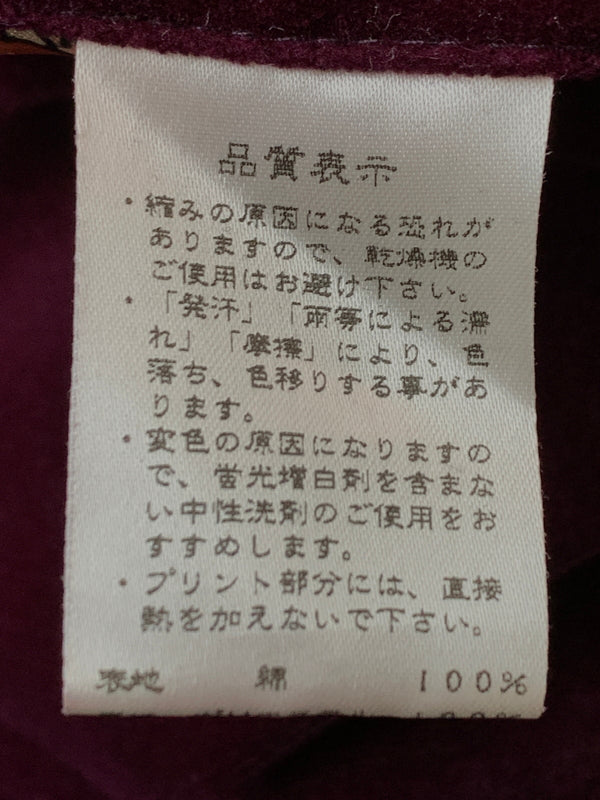 品質表示
・縮みの原因になる恐れが
ありますので、乾燥機の
ご使用はお避け下さい。
・「発汗」「雨等による濡
れ」「摩擦」により、色
落ち、色移りする事があ
ります。
・変色の原因になりますの
で、蛍光増白剤を含まな
い中性洗剤のご使用をお
すすめします。
・プリント部分には、直接
熱を加えないで下さい。
表地 綿 100%